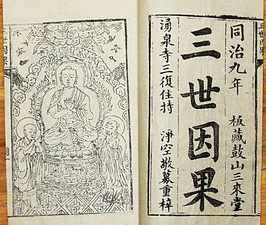 同治九年
板藏鼓山三來堂
三世因果
湧泉寺三復住持
淨空敬募重梓
三世因果